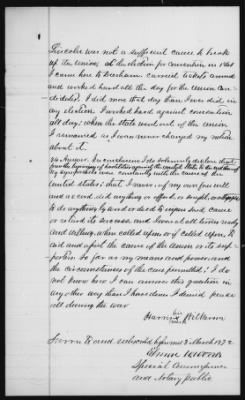 Lincoln was not a sufficient cause to break
up the union, at the election for convention in 1861
I came here to Durham carried tickets around
and worked hard all the day for the union can-
didates. I did more that day than I ever did in
any election. I worked hard against secession
all day. when the state went out of the union
I remained as I ever never changed my notion
about it.
44 Answer. In conclusion I do solemnly declare that
from the beginning of hostilities against the United States to the end thereof
my sympathies were constantly with the cause of the
United States; that I never of my own free will
and accord did anything or offer, or sought, or attempted
to do anything by word or deed to injure said cause
or retard its success and I was at all times ready
and willing, when called upon or if called upon, to
aid and assist the cause of the union or its sup-
porters so far as my means and power, and
the circumstances of the case permitted; I do
not know how I can answer this question in
any other way than I have done I wanted peace
all during the war
his
Harris Wilkerson
mark
Sworn to and subscribed before me 3 March 1872
Special Commissioner
and Notary public